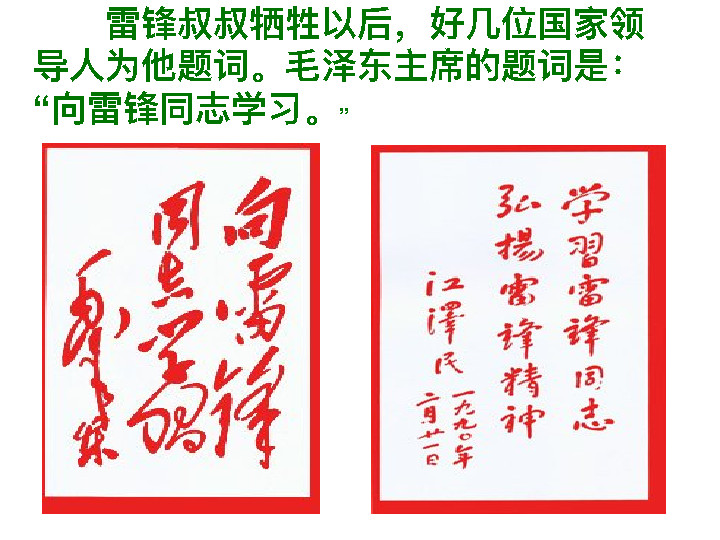 雷锋叔叔牺牲以后，好几位国家领
导人为他题词。毛泽东主席的题词是：
“向雷锋同志学习。”
向雷锋
同志学习
毛泽东
学習雷锋同志
弘揚雷锋精神
江澤民
一九九〇年
二月廿一日